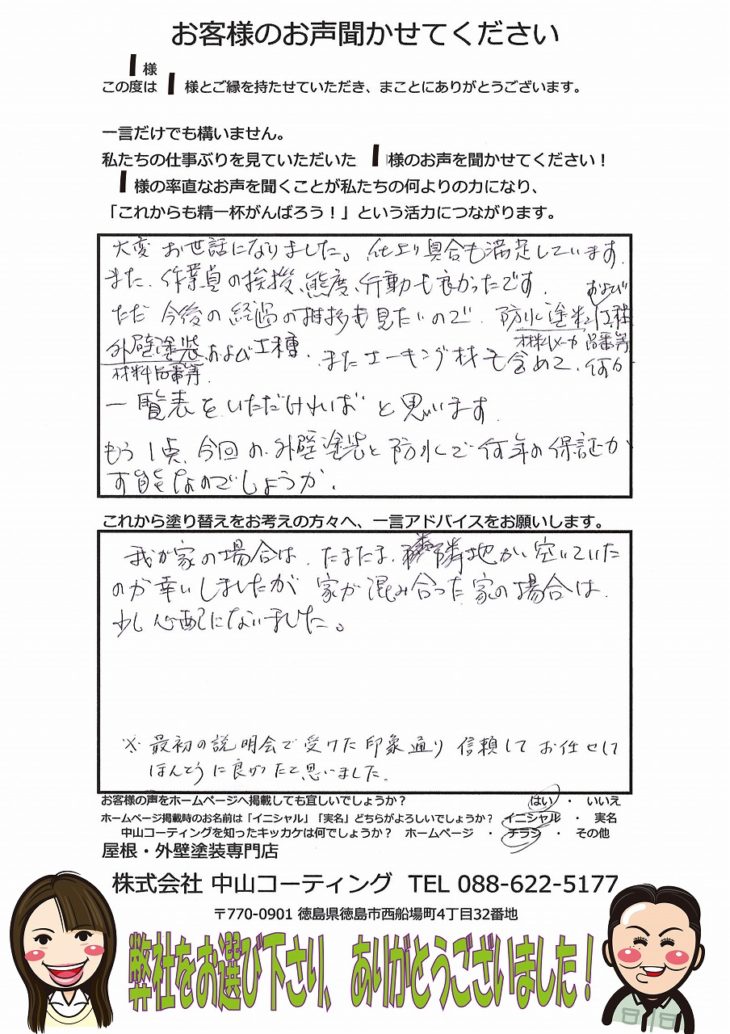 お客様のお声聞かせてください
I 様
この度は I 様とご縁を持たせていただき、まことにありがとうございます。
一言だけでも構いません。
私たちの仕事ぶりを見ていただいた I 様のお声を聞かせてください！
I 様の率直なお声を聞くことが私たちの何よりの力になり、
「これからも精一杯がんばろう！」という活力につながります。
大変お世話になりました。仕上り具合も満足しています。
また、作業員の挨拶、態度、行動も良かったです。
および
ただ今後の経過の推移も見たいので、防水塗料
材料メーカ 品番等
外壁塗装および工種、またコーキング材も含めて、何か
材料品番等
一覧表をいただければと思います。
もう1点、今回の外壁塗装と防水で何年の保証が
可能なのでしょうか。
これから塗り替えをお考えの方々へ、一言アドバイスをお願いします。
我が家の場合は、たまたま、隣地が空いていた
のが幸いしましたが家が混み合った家の場合は
少し心配になりました。
※最初の説明会で受けた印象通り信頼してお任せして
ほんとうに良かったと思いました。
お客様の声をホームページへ掲載しても宜しいでしょうか？ はい ・ いいえ
ホームページ掲載時のお名前は「イニシャル」「実名」どちらがよろしいでしょうか？ イニシャル ・ 実名
中山コーティングを知ったキッカケは何でしょうか？ ホームページ ・ チラシ ・ その他
屋根・外壁塗装専門店
株式会社 中山コーティング TEL 088-622-5177
〒770-0901 徳島県徳島市西船場町4丁目32番地
弊社をお選び下さり、ありがとうございました！